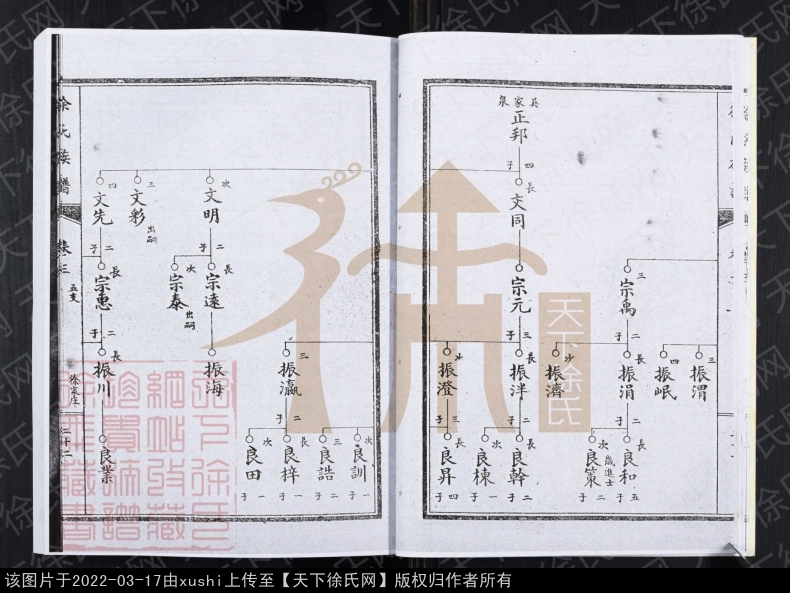 三
宗禹
三
振渭
四
振岷
二子
長
振涓
次
振濟
二子
長
良和
歲進士
五子
次
良策
二子
吳家泉
正邦
四子
長
文同
宗元
三子
長
振泮
次
振澄
二子
長
良幹
二子
次
良棟
一子
三子
長
良昇
四子
次
文明
三
文彩
出嗣
四
文先
二子
長
宗遠
次
宗泰
出嗣
振海
二子
長
宗惠
二子
長
振川
良業
三
振瀛
二子
次
良訓
一子
三
良誥
二子
長
良梓
一子
次
良田
一子
徐氏族譜
卷三
五支
徐家庄
二十二
天下徐氏
天下徐氏网
该图片于2022-03-17由xushi上传至【天下徐氏网】版权归作者所有